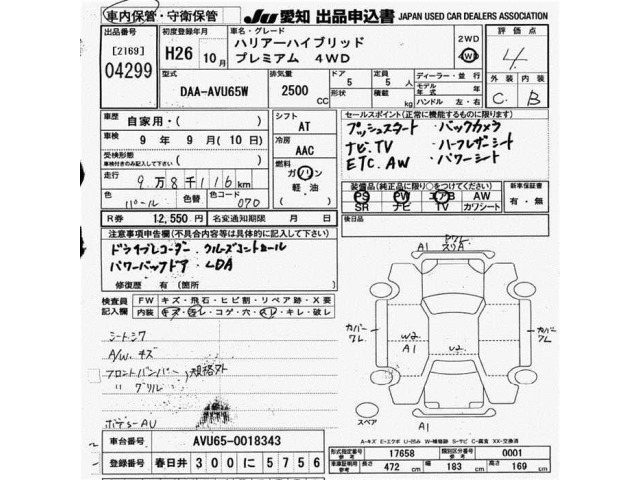 車内保管・守衛保管
JU 愛知 出品申込書 JAPAN USED CAR DEALERS ASSOCIATION
出品番号
[2169]
04299
初度登録年月
H26 10月
車名・グレード
ハリアーハイブリッド
プレミアム 4WD
2WD
4WD
評価点
4
型式
DAA-AVU65W
排気量
2500 CC
ドア
5
形状
定員
5 人
積載 kg
ディーラー・並行
モデル年式 年
ハンドル 左・右
外装 内装
C B
車歴 自家用・( )
車検 9年 9月(10日)
受検形態
車検付きのみ記入して下さい
走行 9万8千116km
色 パール 色替 色コード 070
シフト
AT
冷房
AAC
燃料
ガソリン
軽・油
( )
セールスポイント(正常に機能するものに限ります)
プッシュスタート ・バックカメラ
ナビ.TV ・ハーフレザーシート
ETC.AW ・パワーシート
装備品(純正品に限り○をつけてください)
PS PW エアB AW
SR ナビ TV カワシート
新車保証書
有・無
R券 12,550円 名変通知期限 月 日
後日品
注意事項申告欄(不具合内容等は具体的に記入して下さい)
ドライブレコーダー クルーズコントロール
パワーバックドア ・LDA
修復歴 有(箇所 )
検査員記入欄
FW キズ・飛石・ヒビ割・リペア跡・X要
内装 キズ・汚レ・コゲ・穴・スレ・キレ・破レ
シートシワ
A/W.キズ
フロントバンパー 規格外
〃 グリル
ボデS-AU
A1
スリA
カバーワレ
W2
A1
U2
カバーワレ
A1
スペア
A-キズ E-エクボ U-凹み W-補修跡 S-サビ C-腐食 XX-交換済
車台番号 AVU65-0018343
登録番号 春日井 300 に 5756
型式指定番号 参考 17658 類別区分番号 参考 0001
車庫証明用 参考 長さ 472 cm 幅 183 cm 高さ 169 cm